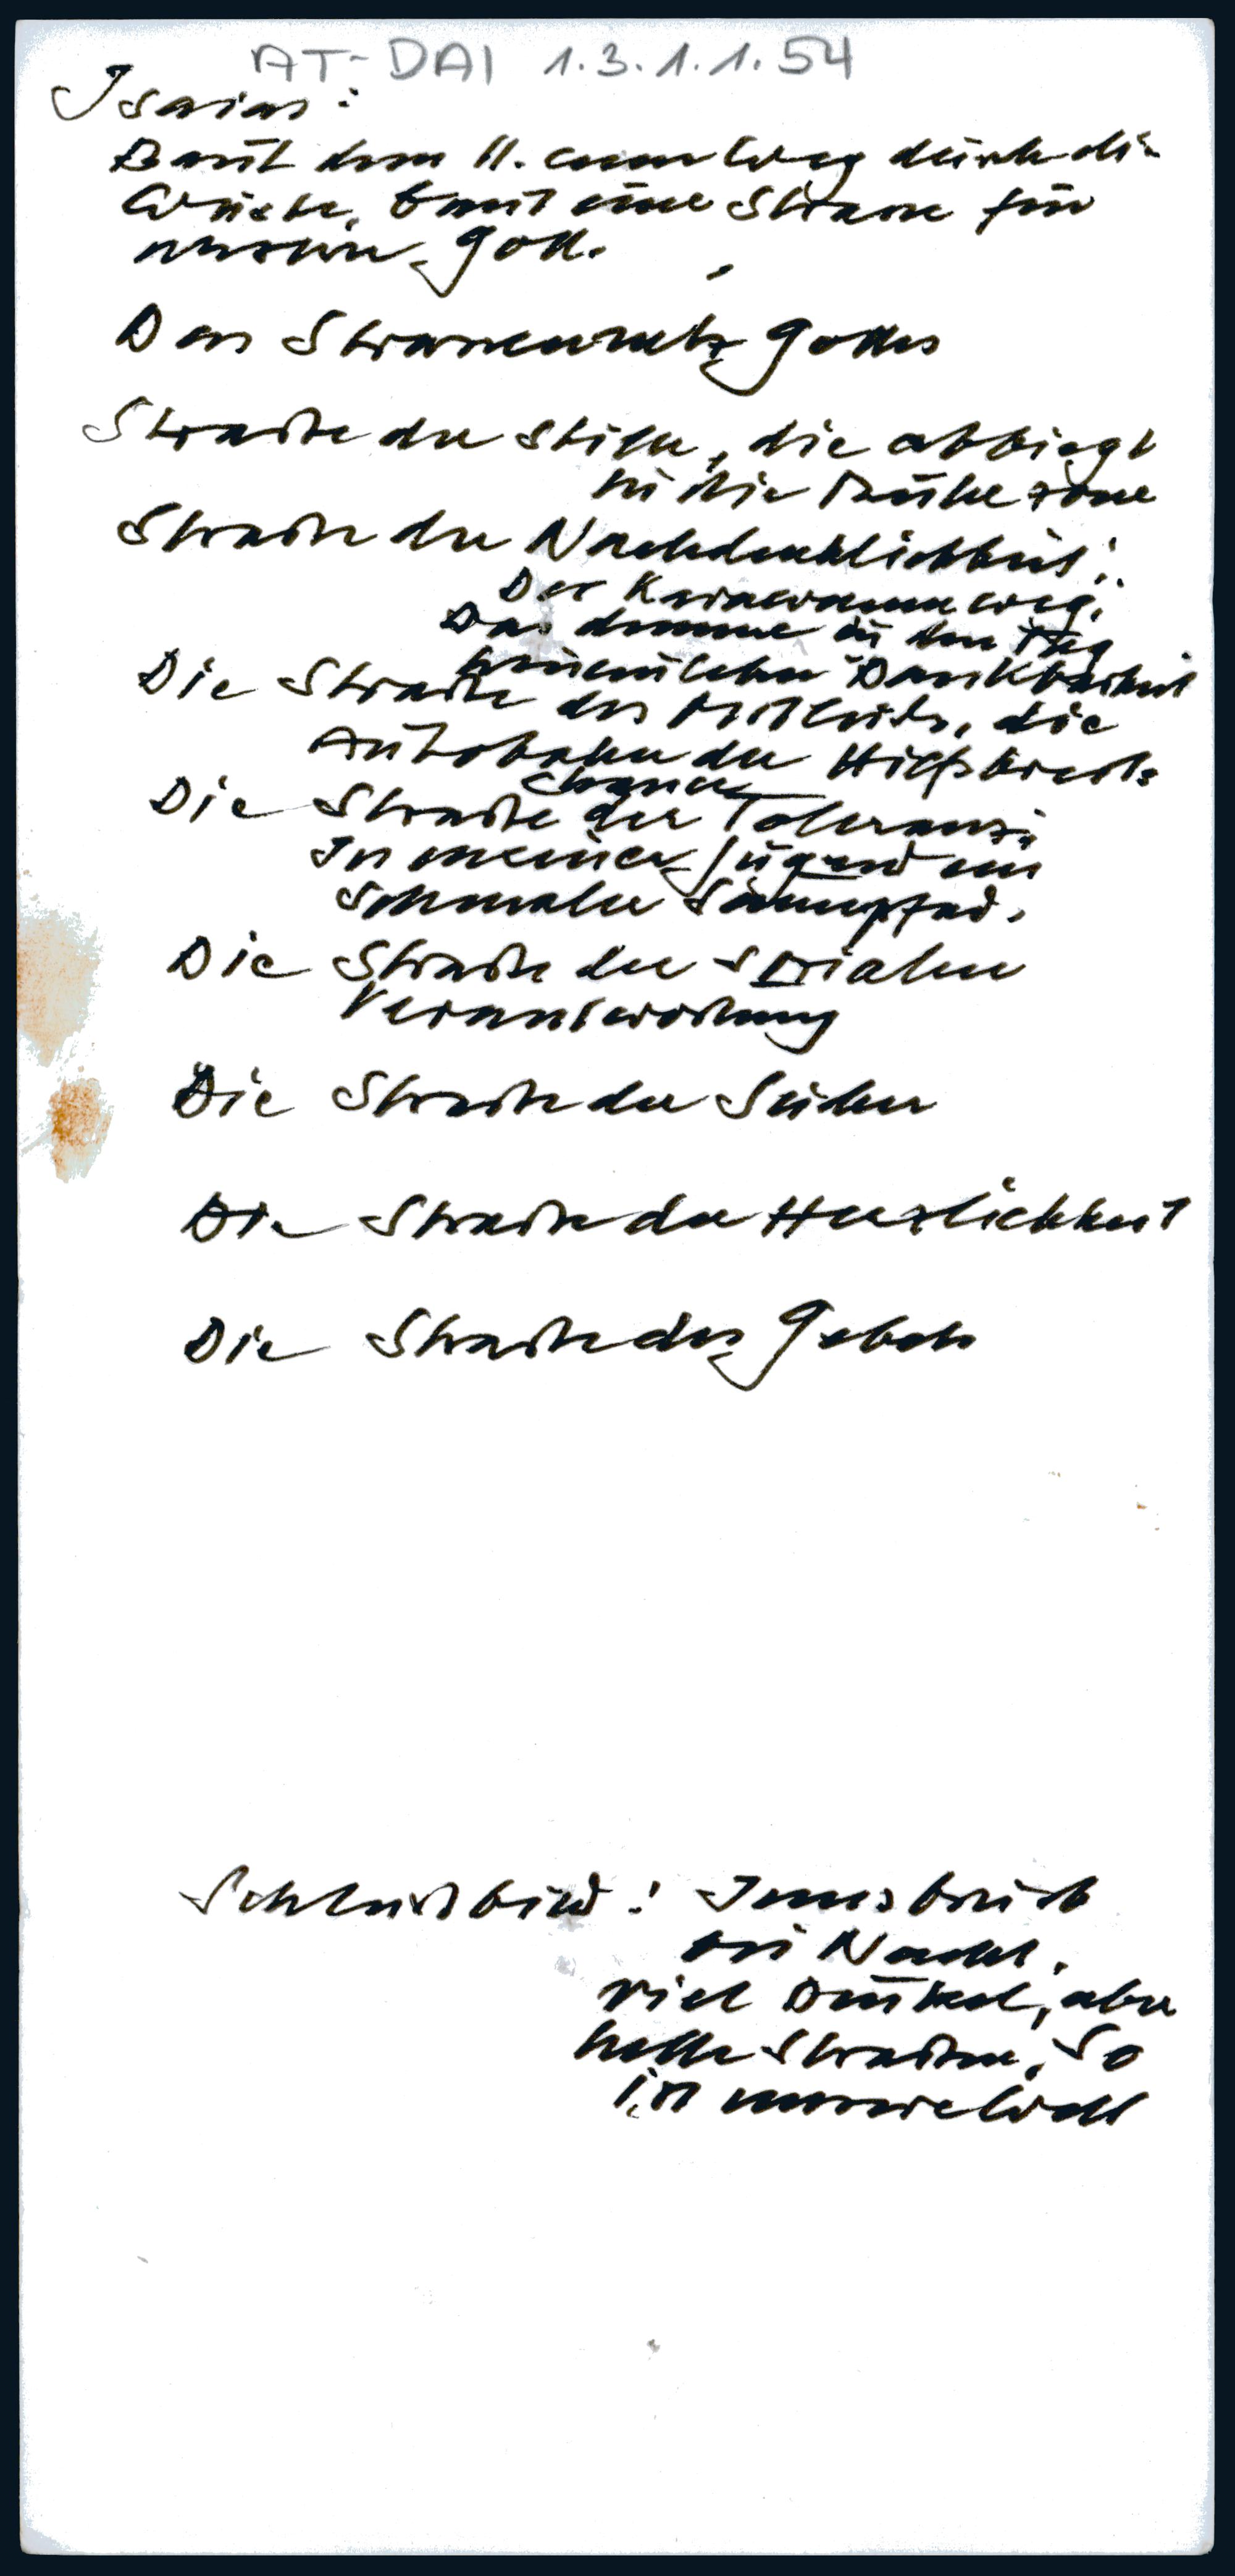 AT-DAI 1.3.1.1.54
Isaias:
Baut dem H. einen Weg durch die
Wüste, baut eine Strasse für
unseren Gott.
Das Strassennetz Gottes
Straße der Stille, die abbiegt
in die Ruhezone
Straße der Nachdenklichkeit:
Der Karawanenweg.
Das in den Tag
Dankbarkeit
Die Straße des Mitleids, die
Autobahn der Hilfsbereits
Die Straße der Toleranz:
In meiner Jugend ein
schmaler Saumpfad.
Die Straße der sozialen
Verantwortung
Die Straße der Sucher
Die Straße der Herzlichkeit
Die Straße des Gebets
Schlußbild: Innsbruck
bei Nacht.
viel Dunkel, aber
helle Straßen. So
ist unsere Welt